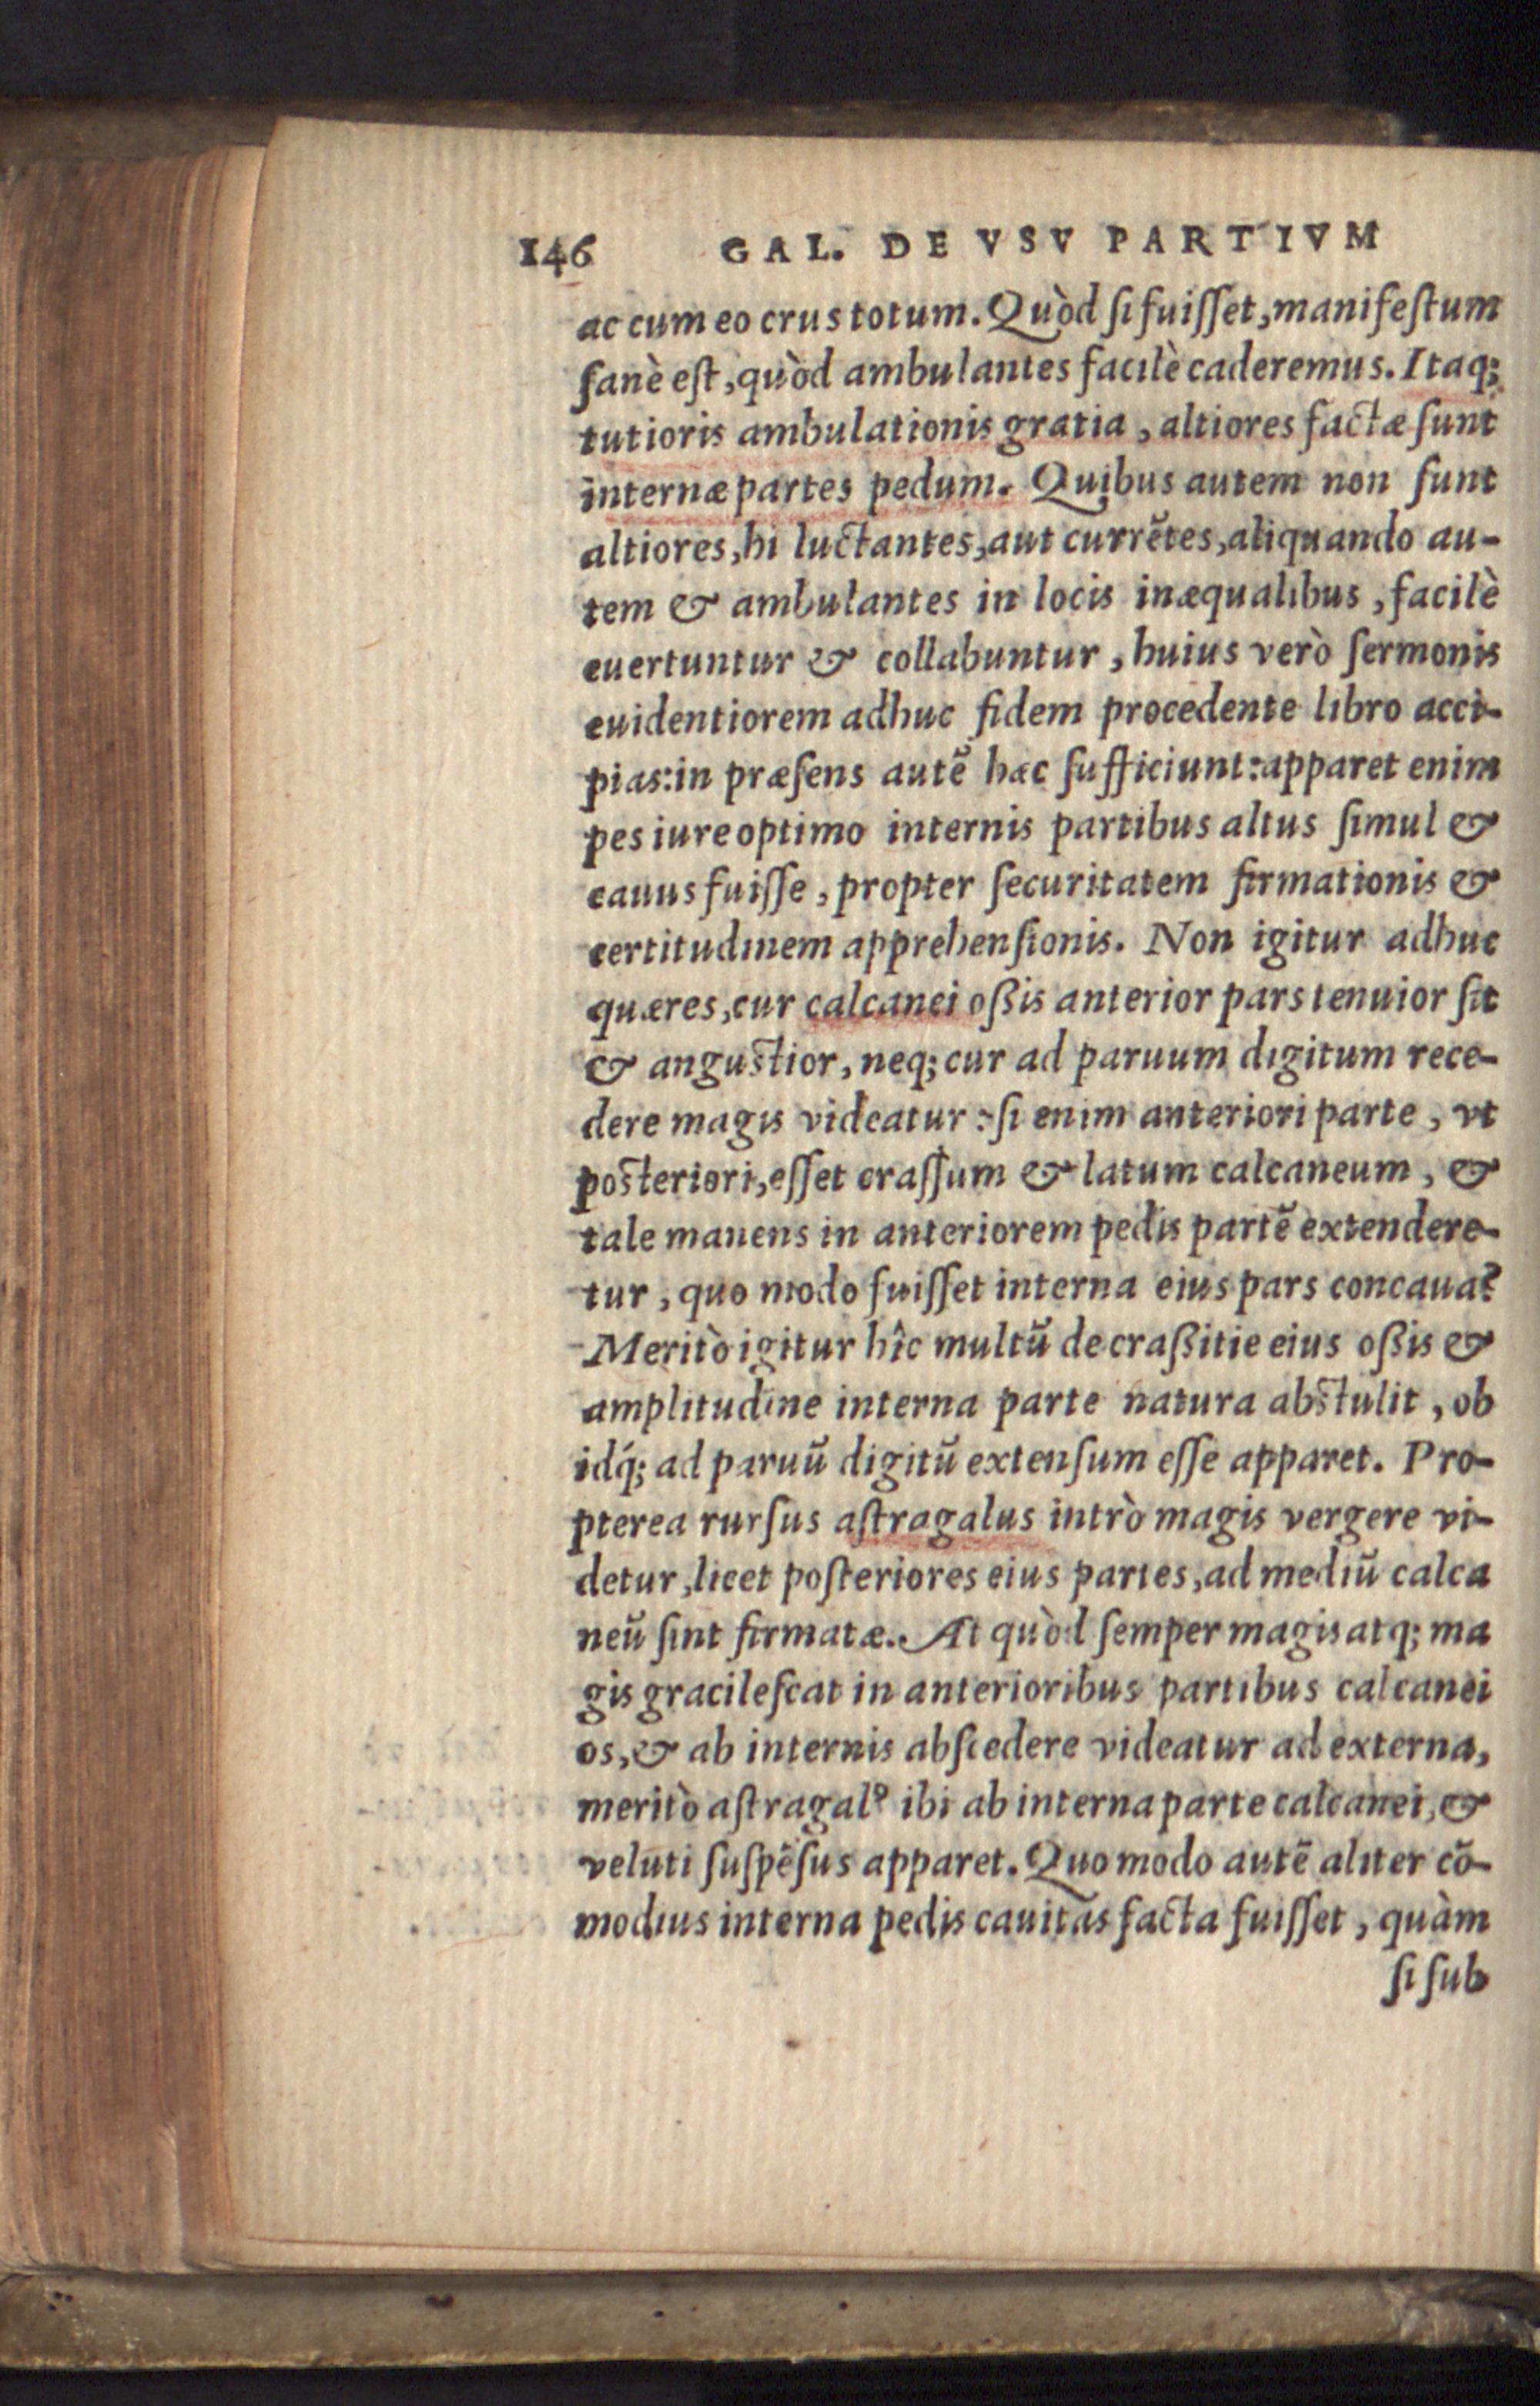 146 GAL. DE VSV PARTIVM
ac cum eo crus totum. Quòd ſi fuiſſet, manifeſtum
ſanè eſt, quòd ambulantes facilè caderemus. Itaq;
tutioris ambulationis gratia, altiores factæ ſunt
internæ partes pedum. Quibus autem non ſunt
altiores, hi luctantes, aut currētes, aliquando au-
tem & ambulantes in locis inæqualibus, facilè
euertuntur & collabuntur, huius verò ſermonis
euidentiorem adhuc fidem procedente libro acci-
pias: in præſens autē hæc ſufficiunt: apparet enim
pes iure optimo internis partibus altus ſimul &
cauus fuiſſe, propter ſecuritatem firmationis &
certitudinem apprehenſionis. Non igitur adhuc
quæres, cur calcanei oßis anterior pars tenuior ſit
& anguſtior, neq; cur ad paruum digitum rece-
dere magis videatur: ſi enim anteriori parte, vt
poſteriori, eſſet craſſum & latum calcaneum, &
tale manens in anteriorem pedis partē extendere-
tur, quo modo fuiſſet interna eius pars concaua?
Meritò igitur hîc multū de craßitie eius oßis &
amplitudine interna parte natura abſtulit, ob
idq́; ad paruū digitū extenſum eſſe apparet. Pro-
pterea rurſus aſtragalus intrò magis vergere vi-
detur, licet poſteriores eius partes, ad mediū calca
neū ſint firmatæ. At quòd ſemper magis atq; ma
gis gracileſcat in anterioribus partibus calcanei
os, & ab internis abſcedere videatur ad externa,
meritò aſtragalꝰ ibi ab interna parte calcanei, &
veluti ſuſpēſus apparet. Quo modo autē aliter cō-
modius interna pedis cauitas facta fuiſſet, quàm
ſi ſub